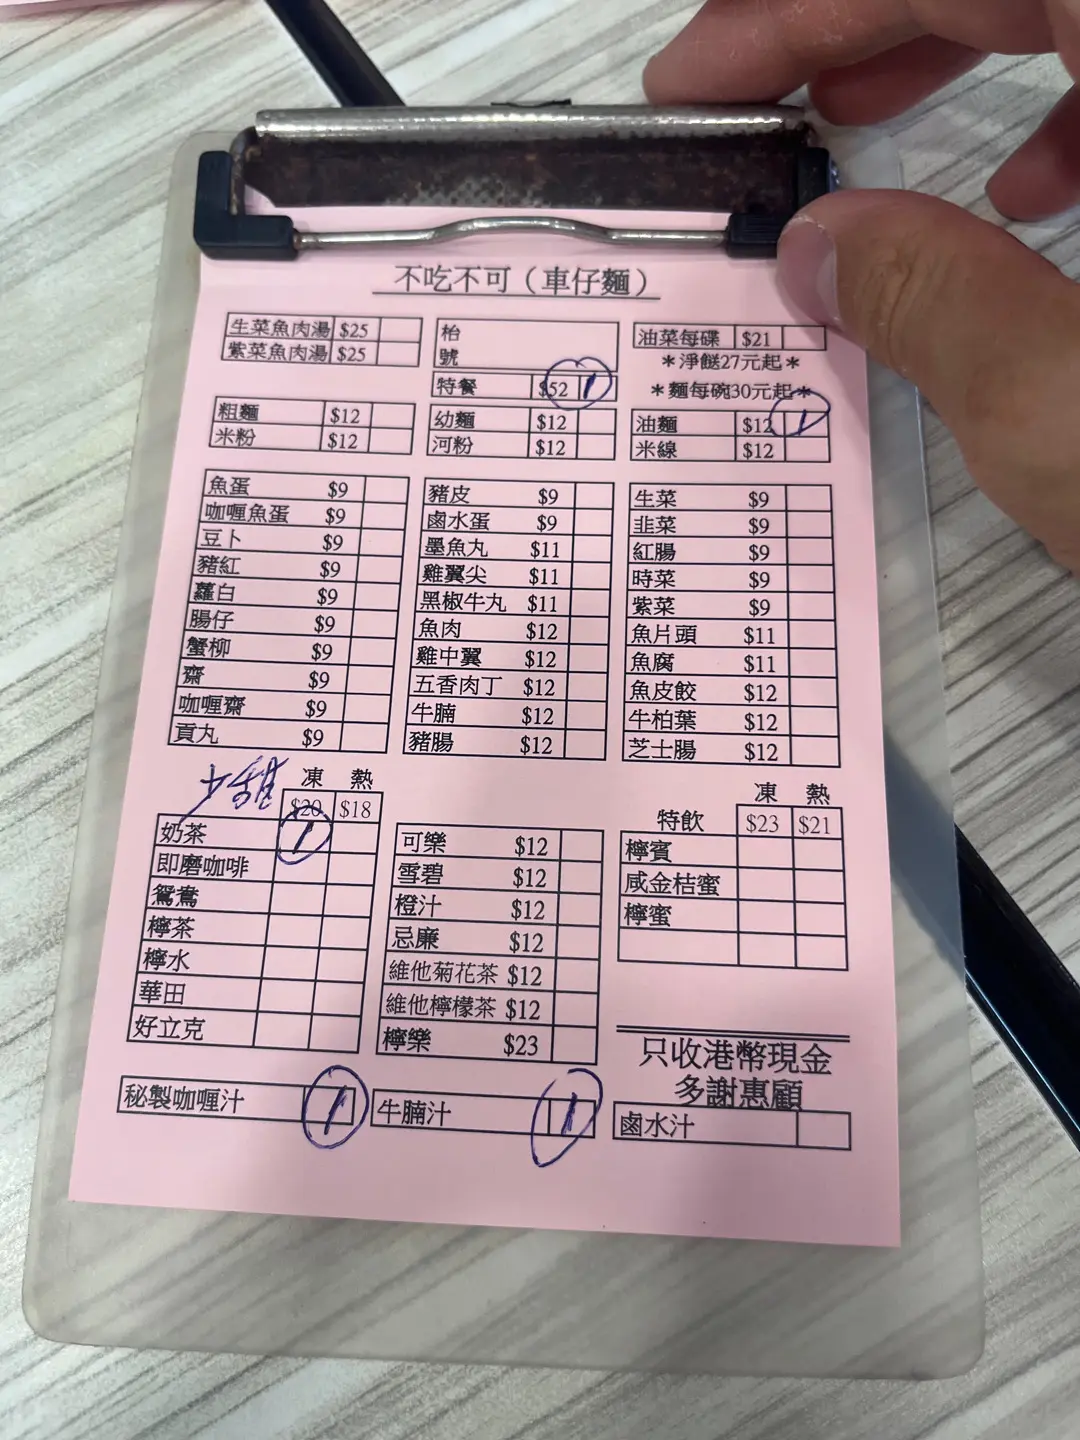 不吃不可（車仔麵）
生菜魚肉湯 $25
紫菜魚肉湯 $25
枱
號
特餐 $52 1
油菜每碟 $21
＊淨餸27元起＊
＊麵每碗30元起＊
粗麵 $12
米粉 $12
幼麵 $12
河粉 $12
油麵 $12 1
米線 $12
魚蛋 $9
咖喱魚蛋 $9
豆卜 $9
豬紅 $9
蘿白 $9
腸仔 $9
蟹柳 $9
齋 $9
咖喱齋 $9
貢丸 $9
豬皮 $9
鹵水蛋 $9
墨魚丸 $11
雞翼尖 $11
黑椒牛丸 $11
魚肉 $12
雞中翼 $12
五香肉丁 $12
牛腩 $12
豬腸 $12
生菜 $9
韭菜 $9
紅腸 $9
時菜 $9
紫菜 $9
魚片頭 $11
魚腐 $11
魚皮餃 $12
牛柏葉 $12
芝士腸 $12
少甜
凍 熱
$20 $18
奶茶 1
即磨咖啡
鴛鴦
檸茶
檸水
華田
好立克
可樂 $12
雪碧 $12
橙汁 $12
忌廉 $12
維他菊花茶 $12
維他檸檬茶 $12
檸樂 $23
凍 熱
特飲 $23 $21
檸賓
咸金桔蜜
檸蜜
只收港幣現金
多謝惠顧
秘製咖喱汁 1
牛腩汁 1
鹵水汁